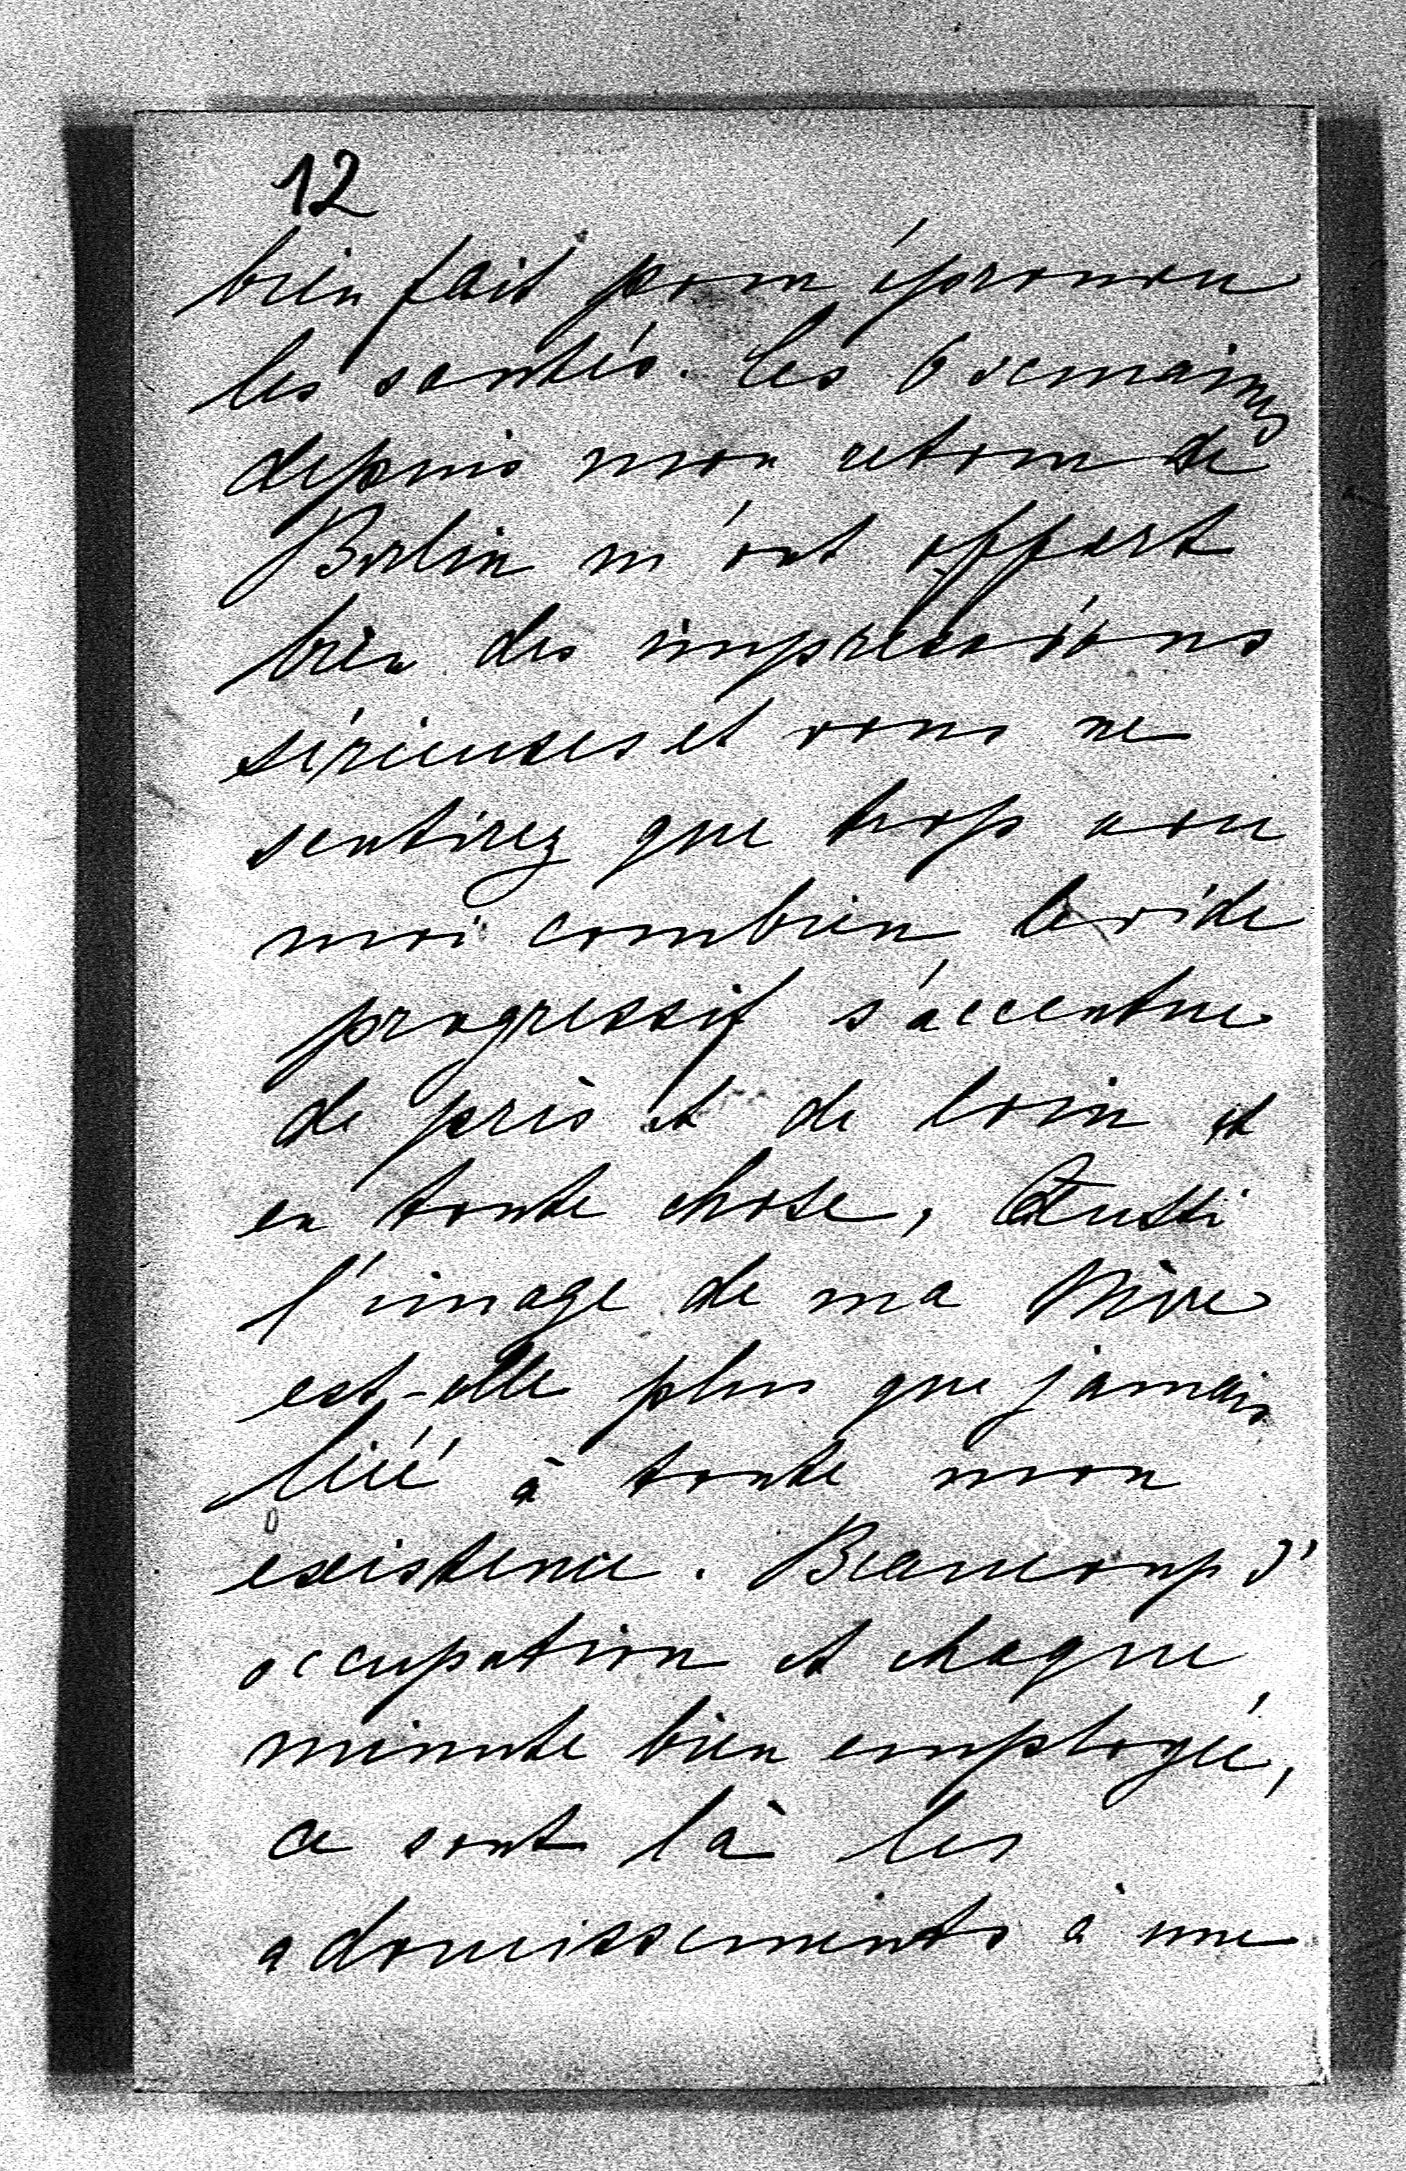 12
bien fait pour éprouver
les santés. Les 6 semaines
depuis mon retour de
Berlin m'ont offert
bien des impressions
sérieuses et vous ne
sentirez que trop avec
moi combien le vide
progressif s'accentue
de près et de loin et
en toute chose, Aussi
l'image de ma Mère
est-elle plus que jamais
liée à toute mon
existence. Beaucoup d'
occupation et chaque
minute bien employée,
ce sont là les
adoucissements à une